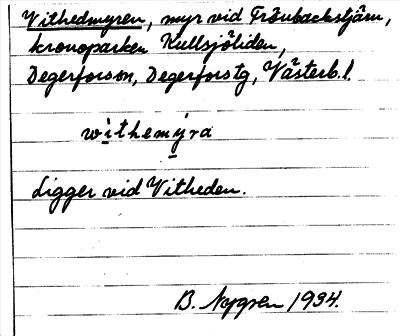 Vithedmyren, myr vid Frönbackstjärn,
kronoparken Kullsjöliden,
Degerforssn, Degerforstg, Västerb. l.
wìthemýra
Ligger vid Vitheden.
B. Nygren 1934.